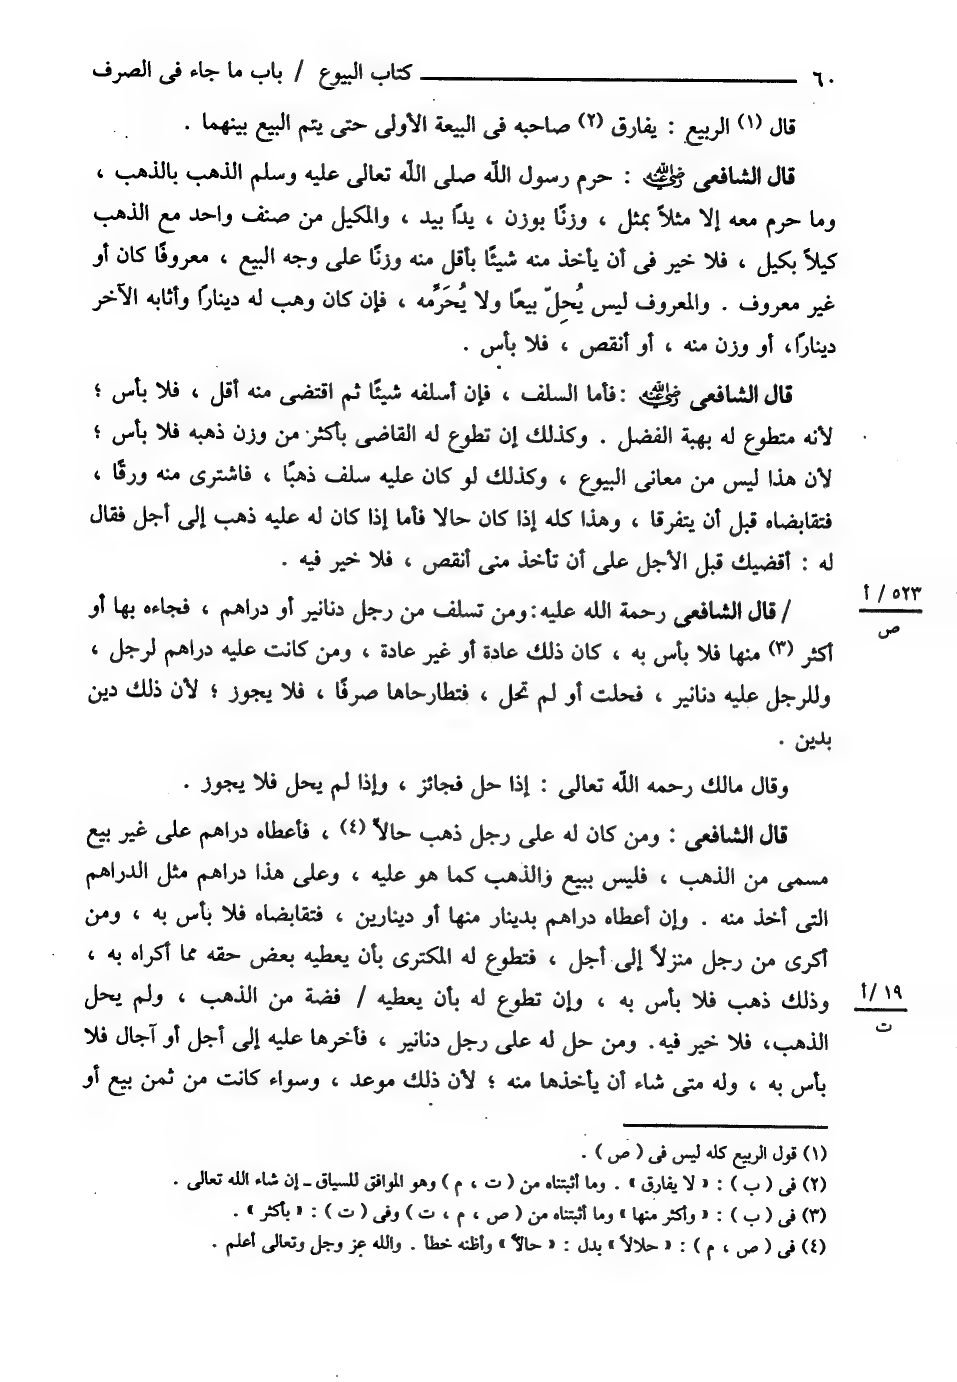 ٦٠ كتاب البيوع / باب ما جاء فى الصرف
قال (١) الربيع : يفارق (٢) صاحبه فى البيعة الأولى حتى يتم البيع بينهما .
قال الشافعى رضي الله عنه : حرم رسول اللّه صلى اللّه تعالى عليه وسلم الذهب بالذهب ،
وما حرم معه إلا مثلاً بمثل ، وزنًا بوزن ، يدًا بيد ، والمكيل من صنف واحد مع الذهب
كيلاً بكيل ، فلا خير فى أن يأخذ منه شيئًا بأقل منه وزنًا على وجه البيع ، معروفًا كان أو
غير معروف . والمعروف ليس يُحِلّ بيعًا ولا يُحَرِّمه ، فإن كان وهب له دينارًا وأثابه الآخر
دينارًا، أو وزن منه ، أو أنقص ، فلا بأس .
قال الشافعى رضي الله عنه : فأما السلف ، فإن أسلفه شيئًا ثم اقتضى منه أقل ، فلا بأس ؛
لأنه متطوع له بهبة الفضل . وكذلك إن تطوع له القاضى بأكثر من وزن ذهبه فلا بأس ؛
لأن هذا ليس من معانى البيوع ، وكذلك لو كان عليه سلف ذهبًا ، فاشترى منه ورقًا ،
فتقابضاه قبل أن يتفرقا ، وهذا كله إذا كان حالا فأما إذا كان له عليه ذهب إلى أجل فقال
له : أقضيك قبل الأجل على أن تأخذ منى أنقص ، فلا خير فيه .
٥٢٣ / أ
ص
/ قال الشافعى رحمة الله عليه: ومن تسلف من رجل دنانير أو دراهم ، فجاءه بها أو
أكثر (٣) منها فلا بأس به ، كان ذلك عادة أو غير عادة ، ومن كانت عليه دراهم لرجل ،
وللرجل عليه دنانير ، فحلت أو لم تحل ، فتطارحاها صرفًا ، فلا يجوز ؛ لأن ذلك دين
بدين .
وقال مالك رحمه اللّه تعالى : إذا حل فجائز ، وإذا لم يحل فلا يجوز .
قال الشافعى : ومن كان له على رجل ذهب حالاً (٤) ، فأعطاه دراهم على غير بيع
مسمى من الذهب ، فليس ببيع والذهب كما هو عليه ، وعلى هذا دراهم مثل الدراهم
التى أخذ منه . وإن أعطاه دراهم بدينار منها أو دينارين ، فتقابضاه فلا بأس به ، ومن
أكرى من رجل منزلاً إلى أجل ، فتطوع له المكترى بأن يعطيه بعض حقه مما أكراه به ،
وذلك ذهب فلا بأس به ، وإن تطوع له بأن يعطيه / فضة من الذهب ، ولم يحل
١٩ /أ
ت
الذهب، فلا خير فيه. ومن حل له على رجل دنانير ، فأخرها عليه إلى أجل أو آجال فلا
بأس به ، وله متى شاء أن يأخذها منه ؛ لأن ذلك موعد ، وسواء كانت من ثمن بيع أو
(١) قول الربيع كله ليس فى ( ص ) .
(٢) فى ( ب ) : « لا يفارق » . وما أثبتناه من ( ت ، م ) وهو الموافق للسياق ـ إن شاء الله تعالى .
(٣) فى ( ب ) : « وأكثر منها » وما أثبتناه من ( ص ، م ، ت ) وفى ( ت ) : « بأكثر » .
(٤) فى ( ص ، م ) : « حلالاً » بدل : « حالاً » وأظنه خطأ . والله عز وجل وتعالى أعلم .